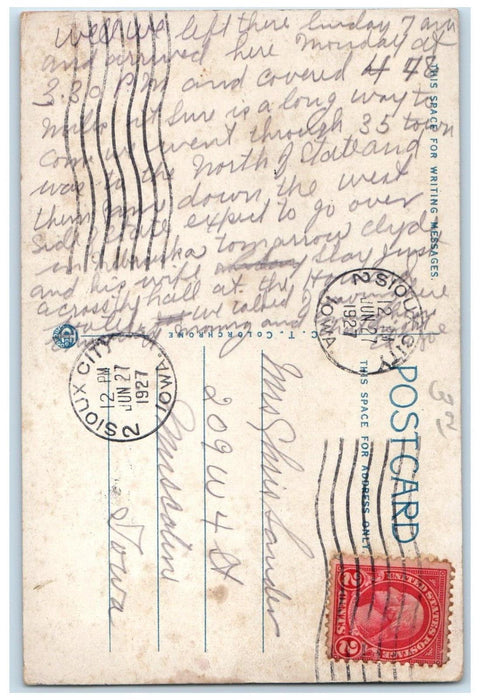 Well we left there Sunday 7 am
and arrived here Monday at
3.30 P.M and covered 448
miles it sure is a long way to
come we went through 35 town
was to the North of State and
them down the west
side State expect to go over
in Nebraska tomorrow Clyde
and his wife stay just
across hall at the
we talked
THIS SPACE FOR WRITING MESSAGES.
C. T. COLORCHROME
SIOUX CITY
12 PM
JUN 27
1927
IOWA
2
SIOUX CITY
12 PM
JUN 27
1927
IOWA.
2
POSTCARD
THIS SPACE FOR ADDRESS ONLY.
Mrs Chris Sander
209 W 4 St
Muscatine
Iowa
UNITED STATES POSTAGE
2 CENTS 2